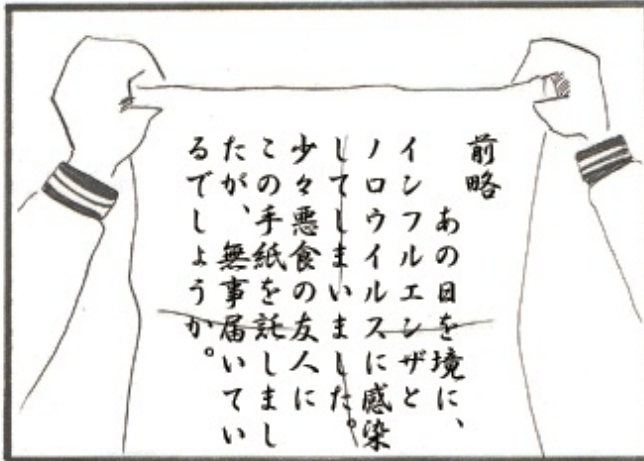 前略
あの日を境に、
インフルエンザと
ノロウイルスに感染
してしまいました。
少々悪食の友人に
この手紙を託しまし
たが、無事届いてい
るでしょうか。